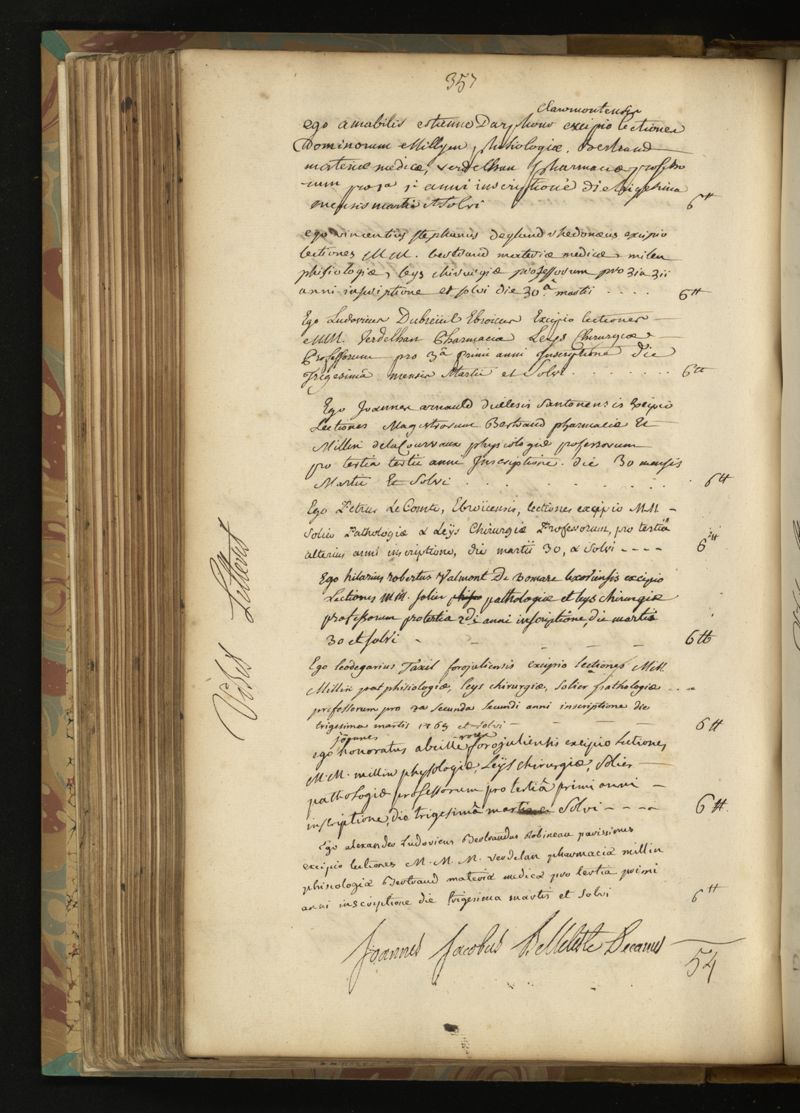 357
claromontensis
ego amabilis estienne Darphous excipio lectiones
Dominorum Millyn phisiologiæ, Bertrand
materiæ medicæ, verdelhan pharmaciæ professo
rum pro 3a 1i anni inscriptione die trigesima
mensis martii et solvi 6 ll
ego vincentius stephanus deyland rhedonæus excipio
lectiones M M. bertrand materiæ medicæ, milen
phisiologiæ, leys chirurgiæ professorum pro 3ia 3ii
anni inscriptione et solvi die 30.a martii . . . . 6 ll
Ego Ludovicus Dubreiul Ebroicus Excipio lectiones
MM. Verdelhan Pharmaciæ Leys Chirurgiæ
Professorum pro 3a Primi anni Inscriptione die
Trigesimâ mensis Martii et Solvi . . . . . . . 6 ll
Ego Joannes arnauld Santonensis Excipio
Lectiones Magistrorum Bertrand pharmaciæ Et
Millin delaCourvaux physiologiæ professorum
pro tertia tertii anni Inscriptione. die 30 mensis
Martii Et Solvi . . . . . . . 6 ll
Ego Petrus Le Comte, Ebroïcensis, lectiones excipio MM -
Solier Pathologiæ & Leÿs Chirurgiæ Professorum, pro tertiâ
alterius anni inscriptione, die martii 30, & solvi - - - - 6 ll
Ego hilarius robertus Valmont De Bomare lexoviensis excipio
Lectiones MM. Solier pathologiæ et leys chirurgiæ
professorum pro tertia 2di anni inscriptione, die martis
30 et solvi - - - - - 6 ll
Ego leodegarius Taxil forojuliensis excipio lectiones MM.
Millin phisiologiæ, leys chirurgiæ, solier pathologiæ - - -
professorum pro secunda secundi anni inscriptione die
trigesima martis 1765 et solvi - - - - 6 ll
joannes roux
ego honoratus abeille forojuliensis excipio lectiones
M.M. millin physologiæ, Leÿs chirurgiæ, Solier
pathologiæ professorum pro tertiâ primi anni -
inscriptione, die trigesimâ Solvi - - - - 6 ll
Ego alexander Ludovicus Bertrandus Robineau parisinus
excipio lectiones M. M. M. verdelan pharmaciæ millin
phisiologiæ Bertrand materia medica pro tertia primi
anni inscriptione die trigesima martis et solvi 6 ll
Joannes Jacobus Belleteste Decanus
54
Vides Lutteret